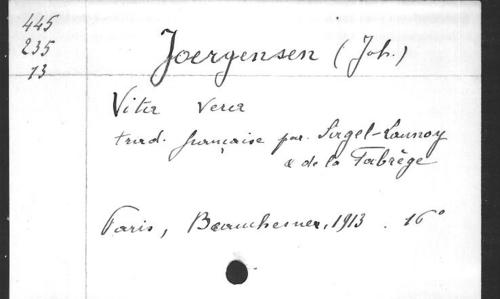 445
235
13
Joergensen (Joh.)
Vita vera
trad. française par Sirgel-Launoy
& de la Fabrège
Paris, Beauchesne, 1913. 16°